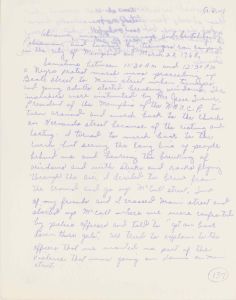 in the city of Memphis on March 28, 1968.
Sometime between 10:30 A.M. and 12:30 P.M.
a Negro protest march was proceeding up
Beale Street to Main street when
and young adults started breaking windows. The
marchers were instructed by Mr. Jesse Turner,
President of the Memphis of the N.A.A.C.P. to
turn around and march back to the church
on Hernando street because of the rioting and
looting. I turned to march back to the
church but seeing the long line of people
behind me and hearing the breaking of
windows and with sticks and rocks flying
through the air, I decided to break from
the crowd and go up McCall street. Two
of my friends and I crossed Main street and
started up McCall where we were confronted
by police officers and told to "get on back
down there". We tried to explain to the
officers that we wanted no part of the
violence that was going on down on Main
street.
(137)